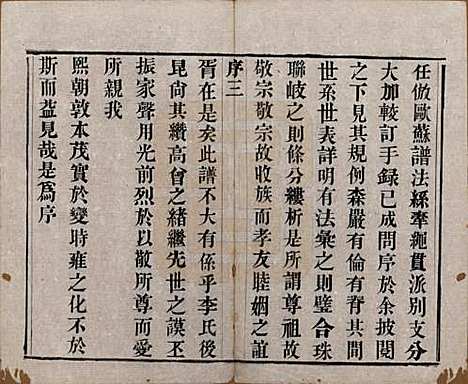 任倣歐蘇譜法絲牽繩貫派別支分
大加較訂手録已成問序於余披閱
之下見其規例森嚴有倫有脊其間
世系世表詳明有法彙之則璧合珠
聯岐之則條分縷析是所謂尊祖故
敬宗敬宗故收族而孝友睦婣之誼
序三
胥在是矣此譜不大有係乎李氏後
昆尚其纘高曾之緒繼先世之謨丕
振家聲用光前烈於以敬所尊而愛
所親我
熙朝敦本茂實於變時雍之化不於
斯而益見哉是爲序